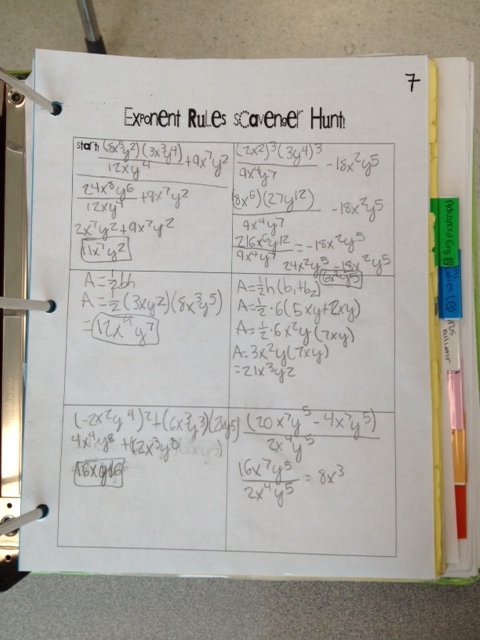 7
Exponent Rules Scavenger Hunt
start: (8x⁵y²)(3x³y⁴)
12xy⁴
+9x⁷y²
24x⁸y⁶
12xy⁴
+9x⁷y²
2x⁷y²+9x⁷y²
11x⁷y²
(2x²)³(3y⁴)³
9x⁴y⁷
-18x²y⁵
(8x⁶)(27y¹²)
9x⁴y⁷
-18x²y⁵
216x⁶y¹²
9x⁴y⁷
=-18x²y⁵
24x²y⁵-18x²y⁵
6x²y⁵
A=½bh
A=½(3xy²)(8x³y⁵)
=12x⁴y⁷
A=½h(b₁+b₂)
A=½·6(5xy+2xy)
A=½·6x²y(7xy)
A=3x²y(7xy)
=21x³y2
(-2x²y⁴)²+(6x³y³)(2xy⁵)
4x⁴y⁸+(12x³y⁸
(20x⁷y⁵-4x⁷y⁵)
2x⁴y⁵
16x⁷y⁵
2x⁴y⁵
=8x³